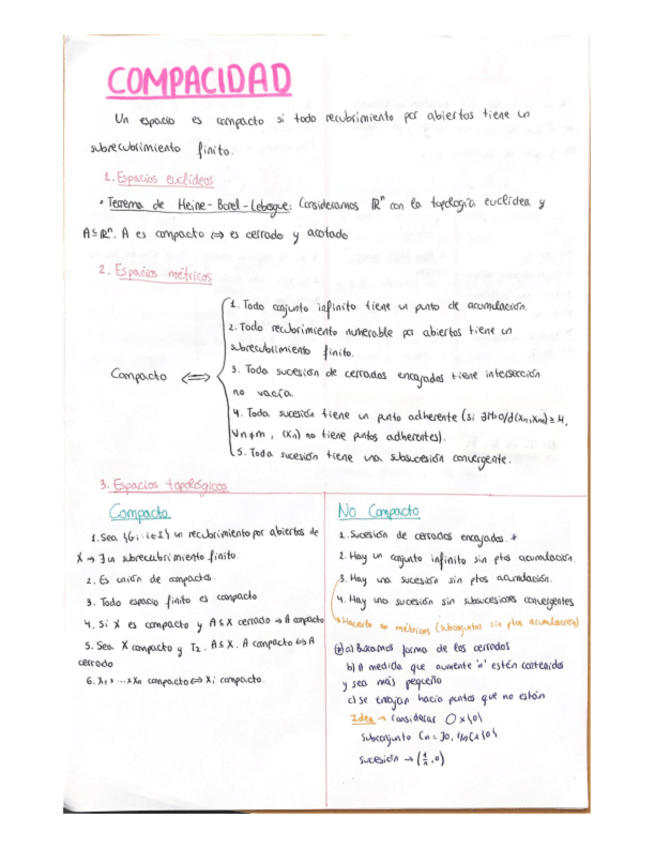 COMPACIDAD
Un espacio es compacto si todo recubrimiento por abiertos tiene un
subrecubrimiento finito.
1. Espacios euclídeos
• Teorema de Heine-Borel-Lebesgue: Consideramos ℝⁿ con la topología euclídea y
A⊆ℝⁿ. A es compacto ⇔ es cerrado y acotado
2. Espacios métricos
Compacto ⇔
1. Todo conjunto infinito tiene un punto de acumulación.
2. Todo recubrimiento numerable por abiertos tiene un
subrecubrimiento finito.
3. Toda sucesión de cerrados encajados tiene intersección
no vacía.
4. Toda sucesión tiene un punto adherente (si ∃M>0/d(xn,xm)≥M,
∀n≠m, (xn) no tiene puntos adherentes).
5. Toda sucesión tiene una subsucesión convergente.
3. Espacios topológicos
Compacto
1. Sea {Gi : i∈I} un recubrimiento por abiertos de
X → ∃ un subrecubrimiento finito.
2. Es unión de compactos.
3. Todo espacio finito es compacto
4. Si X es compacto y A⊆X cerrado → A compacto
5. Sea X compacto y T2. A⊆X. A compacto ⇔ A
cerrado
6. X1×...×Xn compacto ⇔ Xi compacto.
No Compacto
1. Sucesión de cerrados encajados. *
2. Hay un conjunto infinito sin ptos acumulación.
3. Hay una sucesión sin ptos acumulación.
4. Hay una sucesión sin subsucesiones convergentes
Hacerlo en métricos (subconjuntos sin ptos acumulación)
(*) a) Buscamos forma de los cerrados
b) A medida que aumente "n" estén contenidos
y sea más pequeño
c) se encajan hacia puntos que no están
Idea → Considerar O×{0}
Subconjunto Cn = ]0, 1/n[×{0}
Sucesión → (1/n, 0)